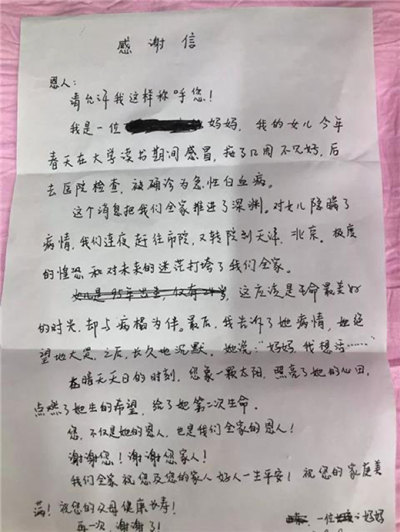 感谢信
恩人：
请允许我这样称呼您！
我是一位妈妈，我的女儿今年
春天在大学读书期间感冒，挨了四周不见好，后
去医院检查，被确诊为急性白血病。
这个消息把我们全家推进了深渊。对女儿隐瞒了
病情，我们连夜赶往市院，又转院到天津，北京。极度
的惶恐和对未来的迷茫打垮了我们全家。
这应该是生命最美好
的时光，却与病榻为伴。最后，我告诉了她病情，她绝
望地大哭，之后，长久地沉默。她说："妈妈，我想活……"
在暗天无日的时刻，您象一颗太阳，照亮了她的心田，
点燃了她生的希望，给了她第二次生命。
您，不仅是她的恩人，也是我们全家的恩人！
谢谢您！谢谢您家人！
我们全家祝您及您的家人好人一生平安！祝您的家庭美
满！祝您的父母健康长寿！
再一次谢谢了！
一位妈妈